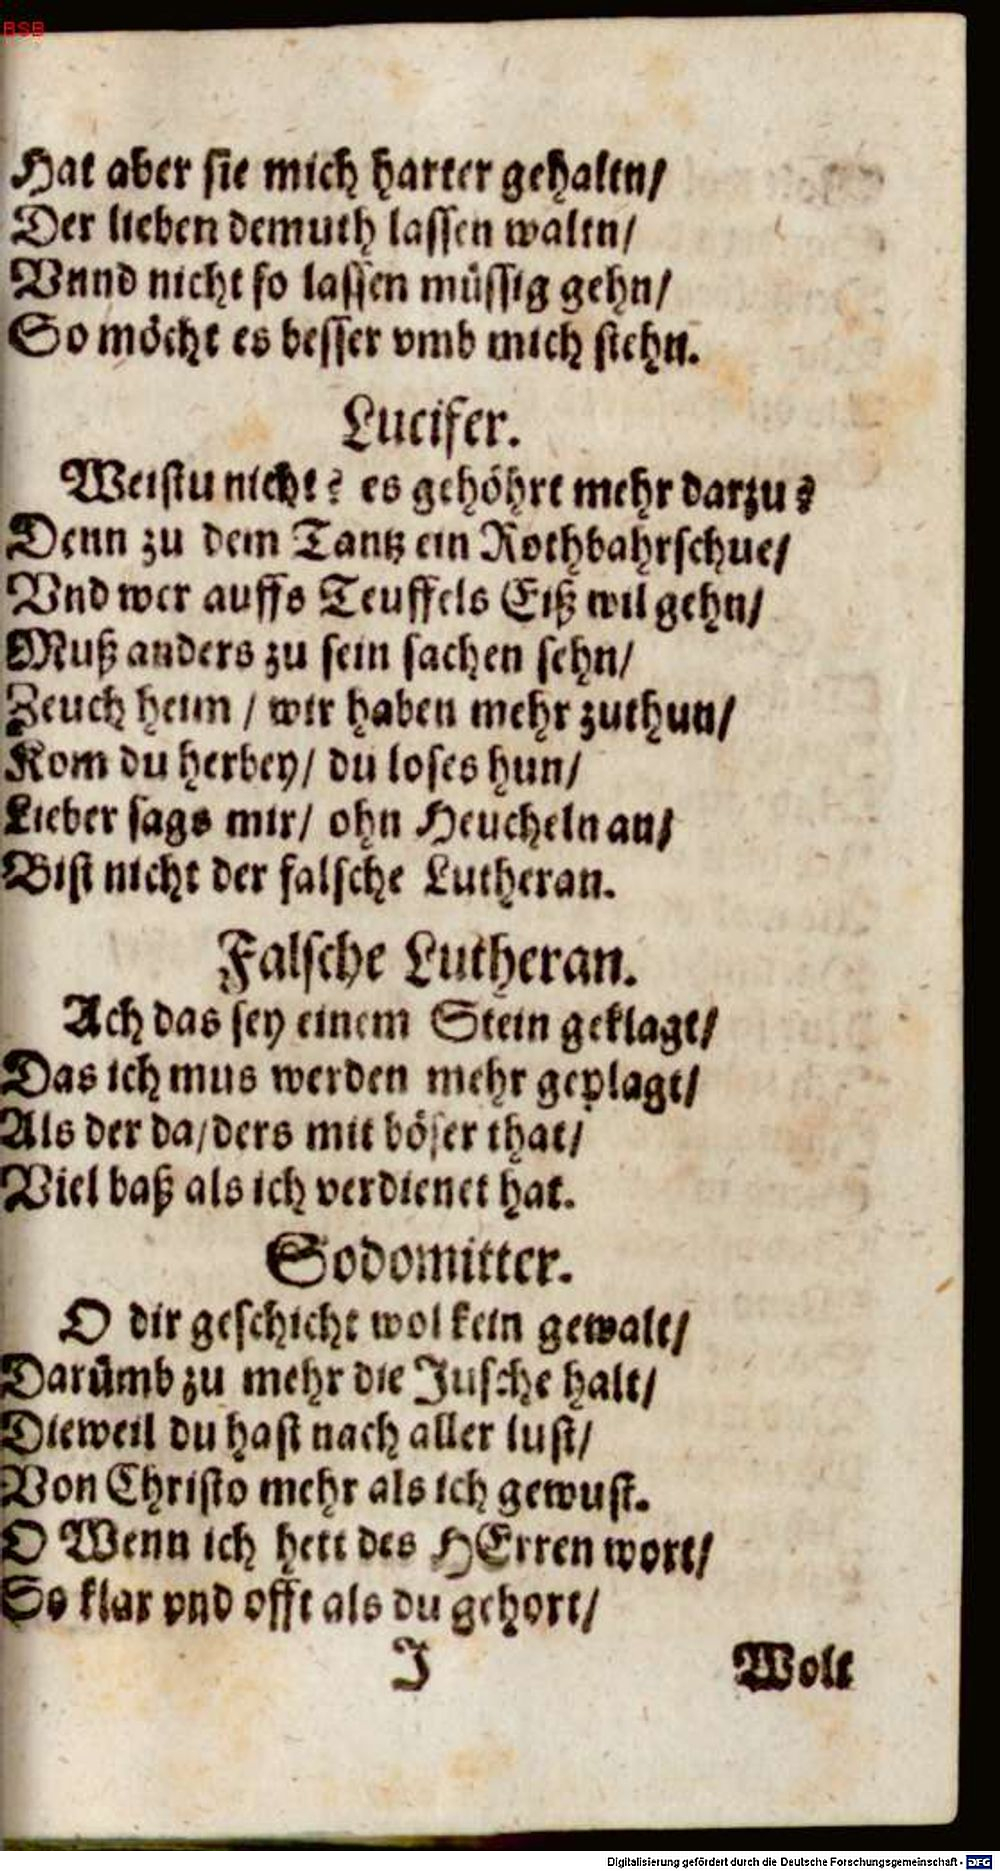 BSB
Hat aber sie mich harter gehaltn/
Der lieben demuth lassen waltn/
Vnnd nicht so lassen müssig gehn/
So möcht es besser vmb mich stehn.
Lucifer.
Weistu nicht? es gehöhrt mehr darzu?
Denn zu dem Tantz ein Rothbahrschue/
Vnd wer auffs Teuffels Eiß wil gehn/
Muß anders zu sein sachen sehn/
Zeuch heim / wir haben mehr zuthun/
Kom du herbey/ du loses hun/
Lieber sags mir/ ohn Heucheln an/
Bist nicht der falsche Lutheran.
Falsche Lutheran.
Ach das sey einem Stein geklagt/
Das ich mus werden mehr geplagt/
Als der da/ders mit böser that/
Viel baß als ich verdienet hat.
Sodomitter.
O dir geschicht wol kein gewalt/
Darümb zu mehr die Jusche halt/
Dieweil du hast nach aller lust/
Von Christo mehr als ich gewust.
O Wenn ich hett des HErren wort/
So klar vnd offt als du gehort/
J
Wolt
Digitalisierung gefördert durch die Deutsche Forschungsgemeinschaft - DFG